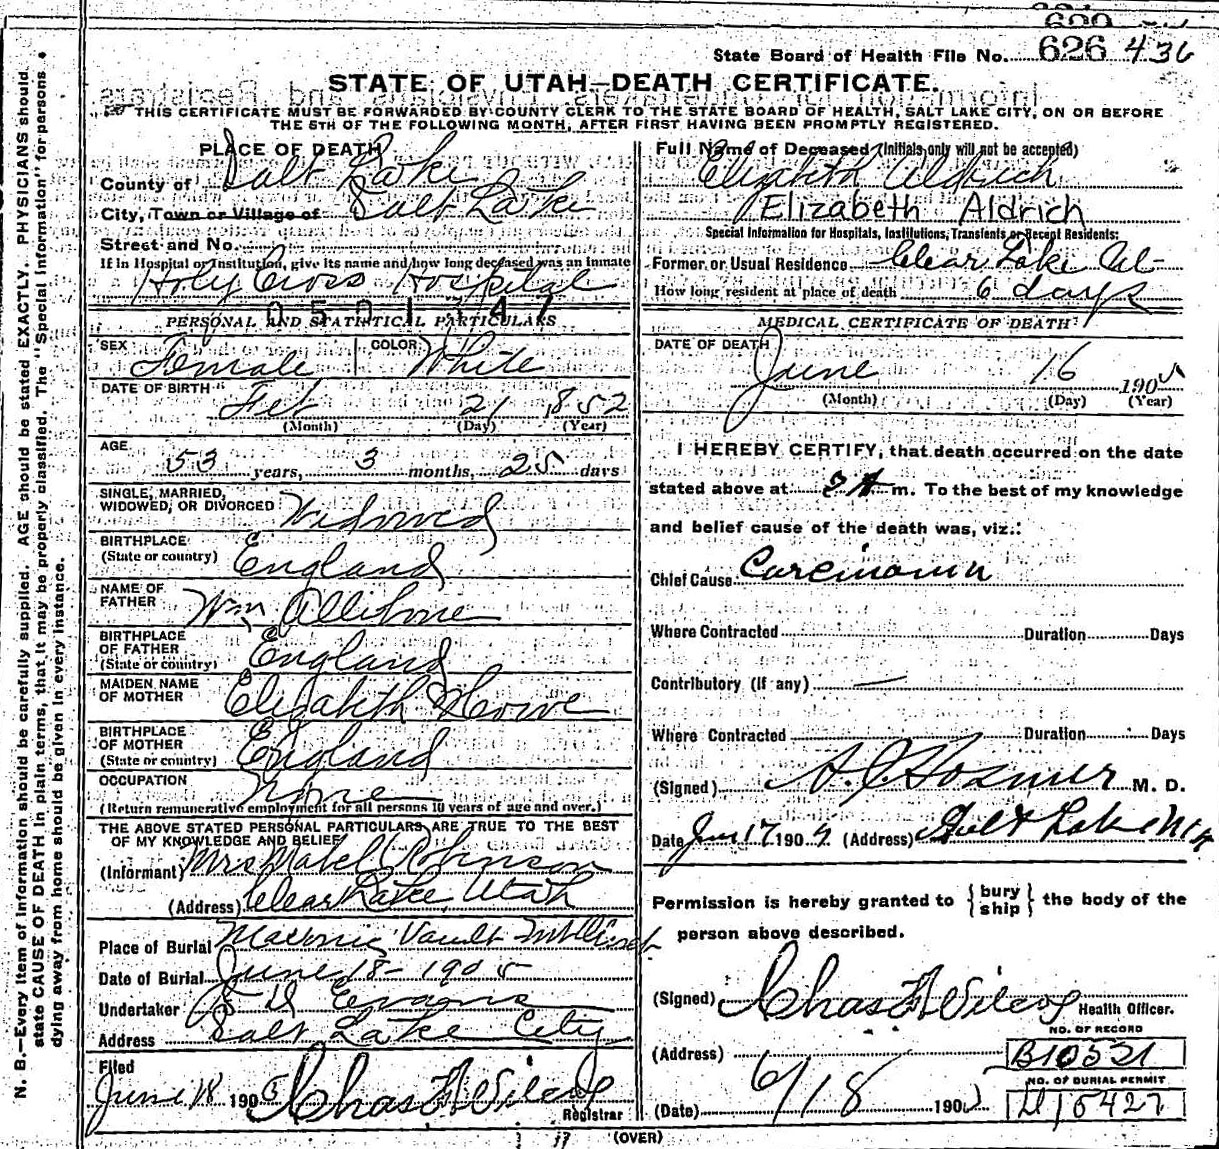 State Board of Health File No. 626 436
STATE OF UTAH—DEATH CERTIFICATE.
THIS CERTIFICATE MUST BE FORWARDED BY COUNTY CLERK TO THE STATE BOARD OF HEALTH, SALT LAKE CITY, ON OR BEFORE
THE 5TH OF THE FOLLOWING MONTH, AFTER FIRST HAVING BEEN PROMPTLY REGISTERED.
N. B.—Every item of information should be carefully supplied. AGE should be stated EXACTLY. PHYSICIANS should
state CAUSE OF DEATH in plain terms, that it may be properly classified. The "Special Information" for persons
dying away from home should be given in every instance.
PLACE OF DEATH
County of Salt Lake
City, Town or Village of Salt Lake
Street and No.
If in Hospital or Institution, give its name and how long deceased was an inmate
Holy Cross Hospital
0501347
PERSONAL AND STATISTICAL PARTICULARS
SEX Female COLOR White
DATE OF BIRTH Feb 21 1852
(Month) (Day) (Year)
AGE 53 years, 3 months, 25 days
SINGLE, MARRIED,
WIDOWED, OR DIVORCED Widowed
BIRTHPLACE
(State or country) England
NAME OF
FATHER Wm Allibone
BIRTHPLACE
OF FATHER
(State or country) England
MAIDEN NAME
OF MOTHER Elizabeth Howe
BIRTHPLACE
OF MOTHER
(State or country) England
OCCUPATION None
(Return remunerative employment for all persons 10 years of age and over.)
THE ABOVE STATED PERSONAL PARTICULARS ARE TRUE TO THE BEST
OF MY KNOWLEDGE AND BELIEF
(Informant) Mrs Mabel Robinson
(Address) Clear Lake, Utah
Place of Burial Masonic Vault Mt Olivet
Date of Burial June 18 - 1905
Undertaker E D Evans
Address Salt Lake City
Filed
June 18 1905 Chas F Wilcox
Registrar
Full Name of Deceased (Initials only will not be accepted)
Elizabeth Aldrich
Elizabeth Aldrich
Special Information for Hospitals, Institutions, Transients or Recent Residents:
Former or Usual Residence Clear Lake Ut-
How long resident at place of death 6 days
MEDICAL CERTIFICATE OF DEATH
DATE OF DEATH
June 16 1905
(Month) (Day) (Year)
I HEREBY CERTIFY, that death occurred on the date
stated above at A m. To the best of my knowledge
and belief cause of the death was, viz.:
Chief Cause Carcinoma
Where Contracted Duration Days
Contributory (If any) —
Where Contracted Duration Days
(Signed) A. C. Hosmer M. D.
Date Jun 17 190 (Address) Salt Lake
Permission is hereby granted to {bury
ship} the body of the
person above described.
(Signed) Chas F Wilcox Health Officer.
NO. OF RECORD
(Address) B10521
NO. OF BURIAL PERMIT
(Date) 6/18 1905 D15427
(OVER)